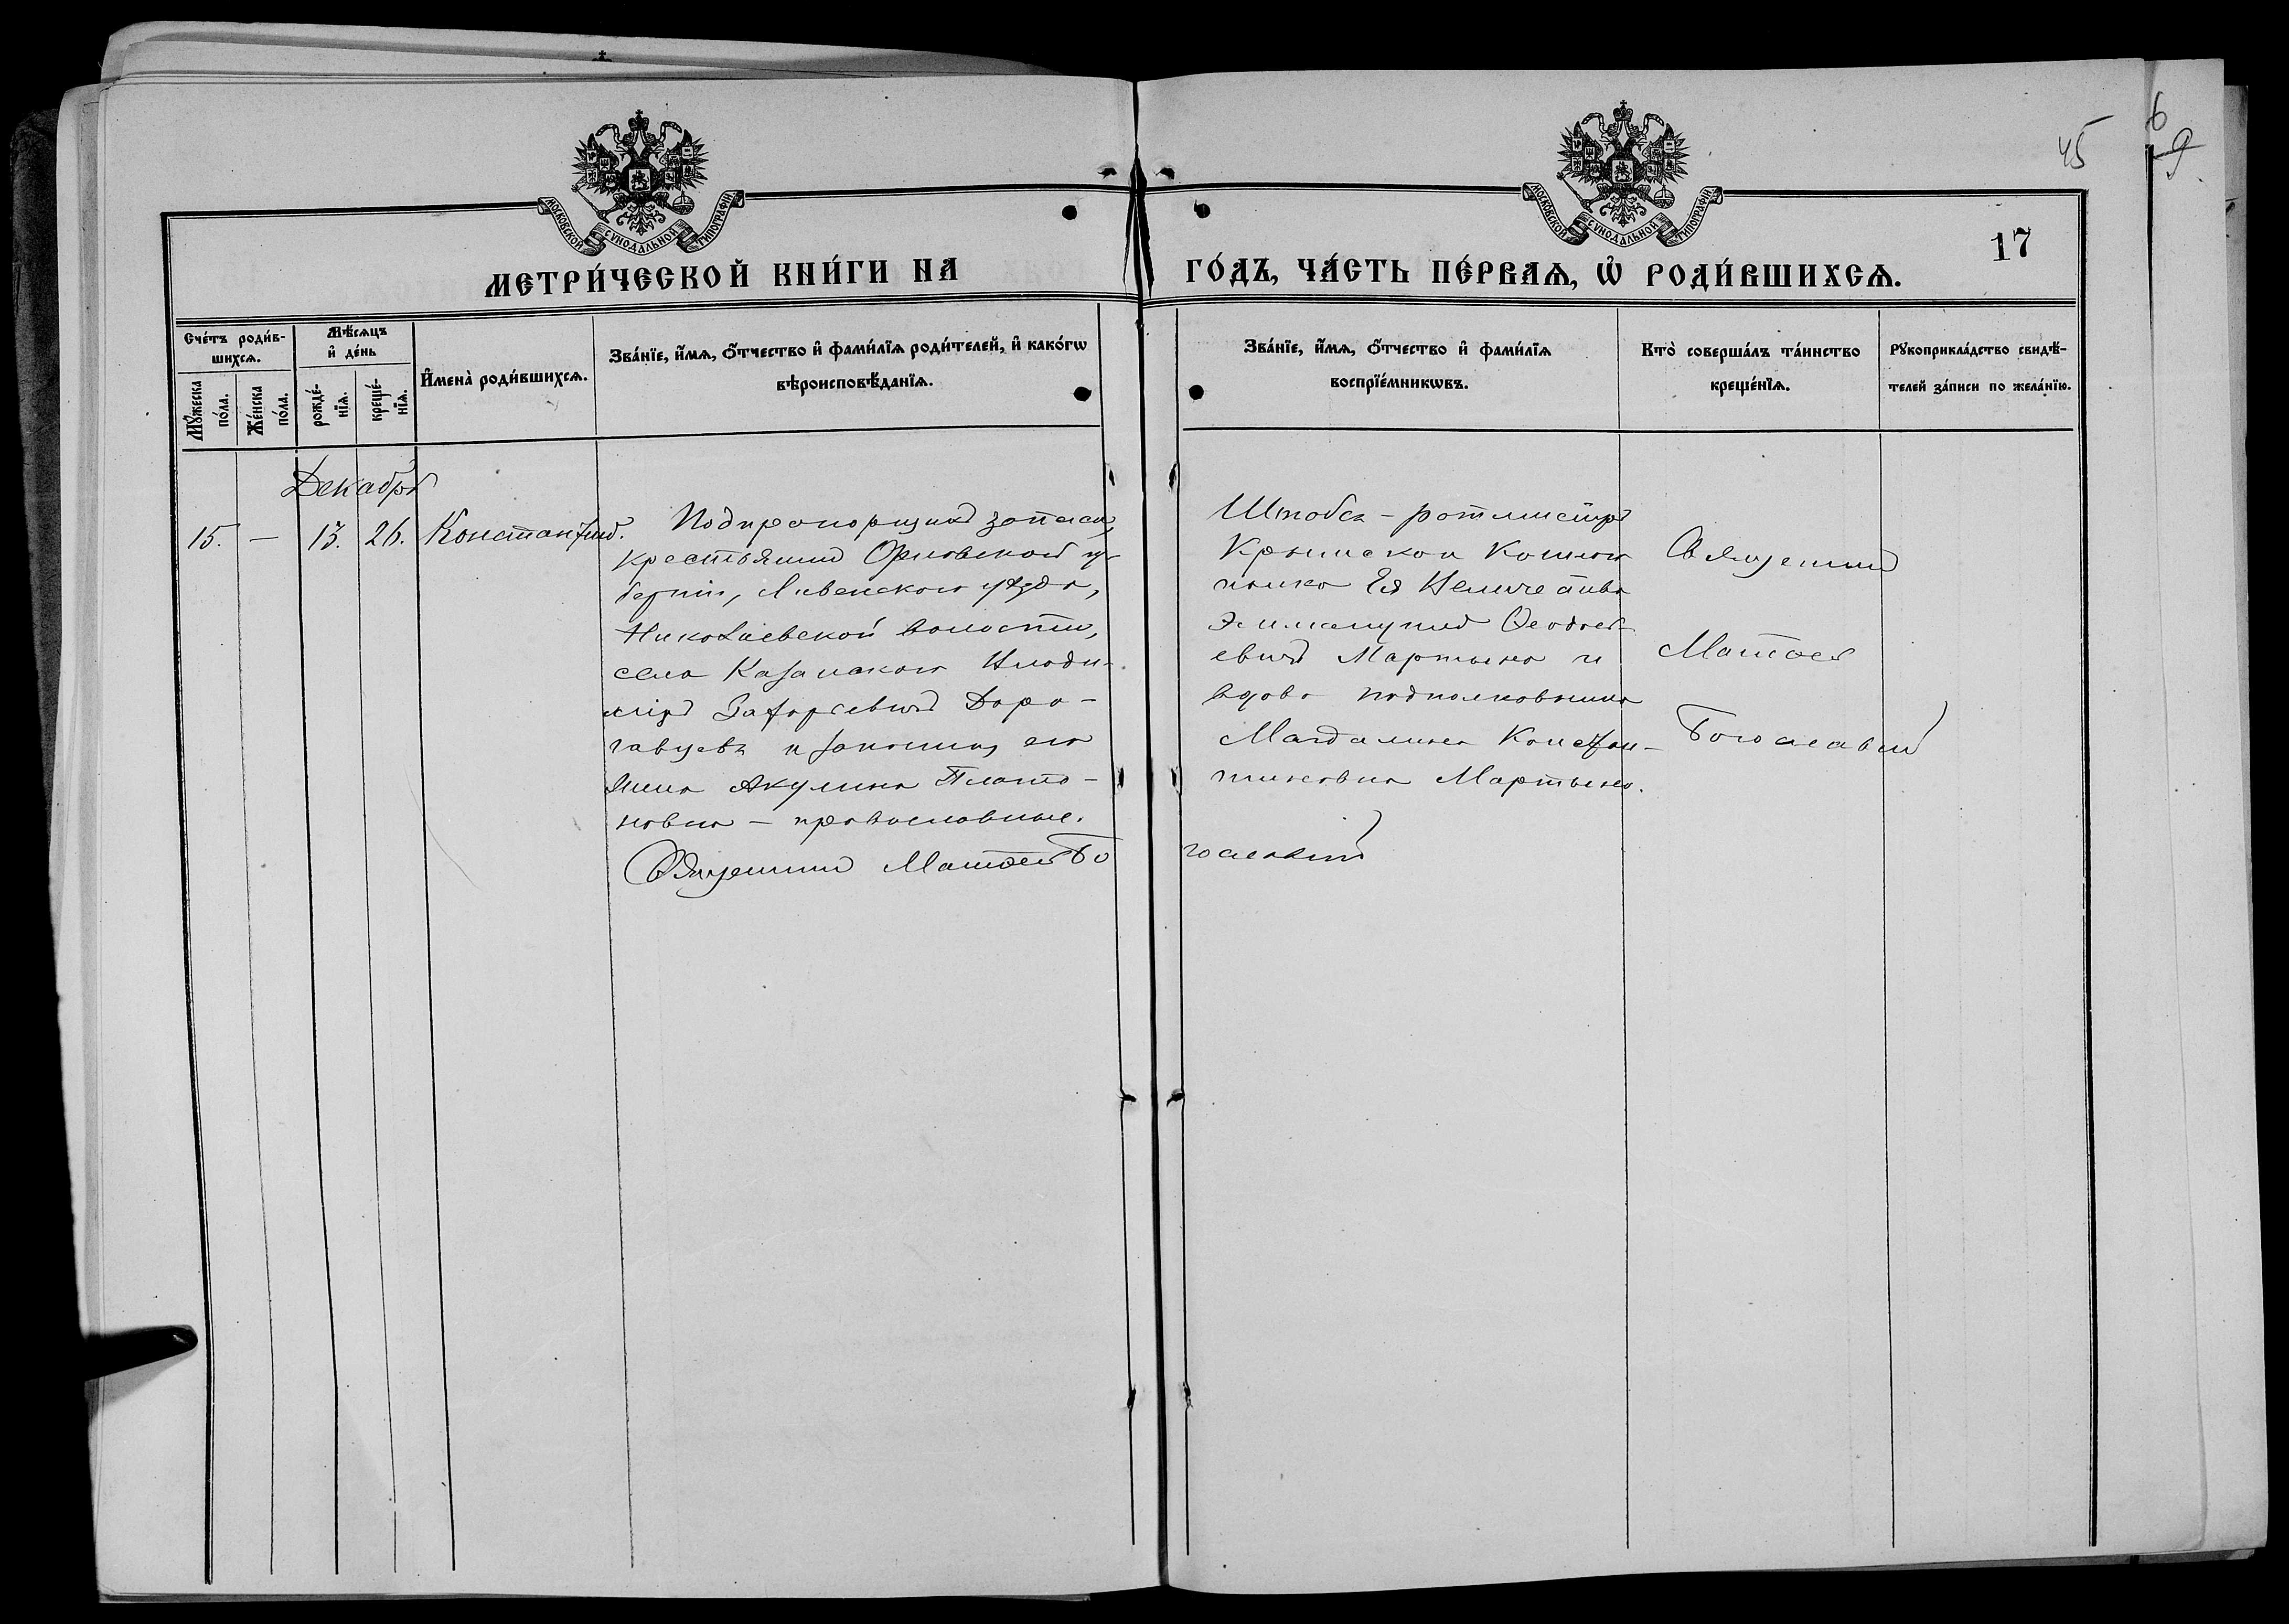 МОСКОВСКОЙ СѴНОДАЛЬНОЙ ТИПОГРАФІИ
МОСКОВСКОЙ СѴНОДАЛЬНОЙ ТИПОГРАФІИ
45
6
9
17
МЕТРИ́ЧЕСКОЙ КНИ́ГИ НА
ГО́ДЪ, ЧА́СТЬ ПЕ́РВАѦ, Ѡ҆ РОДИ́ВШИХСѦ.
Сче́тъ роди́в-
шихсѧ.
Мѣ́сѧцъ
и҆ де́нь
Мꙋ́жеска
по́ла.
Же́нска
по́ла.
рожде́-
нїѧ.
креще́-
нїѧ.
И҆мена̀ роди́вшихсѧ.
Зва́нїе, и҆́мѧ, ѻ҆́тчество и҆ фами́лїѧ роди́телей, и҆ како́гѡ
вѣроисповѣ́данїѧ.
Зва́нїе, и҆́мѧ, ѻ҆́тчество и҆ фами́лїѧ
воспрїе́мникѡвъ.
Кто̀ соверша́лъ та́инство
креще́нїѧ.
Рꙋкоприкла́дство свидѣ́-
телей за́писи по жела́нїю.
Декабрь
15. — 13. 26. Константинъ.
Подпрапорщикъ запаса,
крестьянинъ Орловской гу-
берніи, Ливенскаго уѣзда,
Николаевской волости,
села Казанскаго Влади-
міръ Григорьевичъ
и законная его
жена Акулина Плато-
новна — православные.
Священникъ Матѳей Бо
гословскій
Штабсъ-ротмистръ
Крымскаго Коннаго
полка Ея Величества
Эммануилъ Ѳеодосі-
евичъ Мартыно и
вдова подполковника
Магдалина Констан-
тиновна Мартыно.
Священникъ
Матѳей
Богословскій